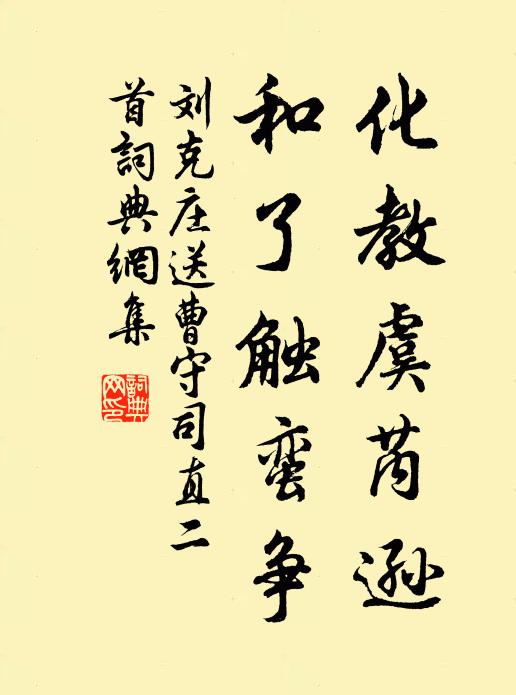 化教虞芮逊
和了触蛮争
刘克庄送曹守司直二
首詞典網集
詞典网印